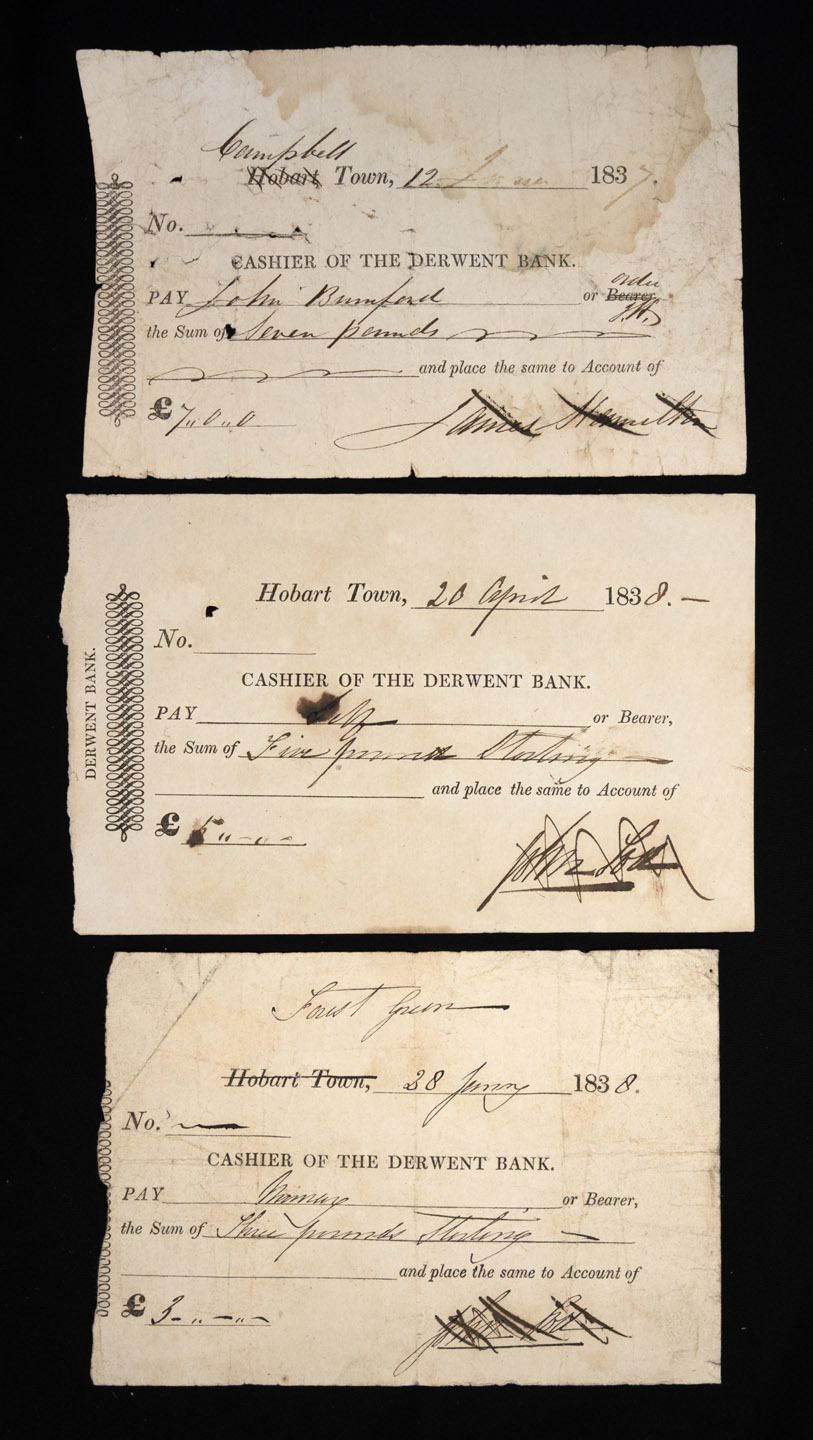 Campbell
Hobart Town, 12 June 1837.
No.
CASHIER OF THE DERWENT BANK.
order
PAY John Bumford or Bearer,
J.H.
the Sum of Seven pounds
and place the same to Account of
£ 7,,0,,0
James Hamilton
DERWENT BANK.
Hobart Town, 20 April 1838.—
No.
CASHIER OF THE DERWENT BANK.
PAY Self or Bearer,
the Sum of Five pounds Sterling —
and place the same to Account of
£ 5,,-,,-
John
Forest Green
Hobart Town, 28 1838.
No.
CASHIER OF THE DERWENT BANK.
PAY or Bearer,
the Sum of Three pounds Sterling —
and place the same to Account of
£ 3-,,-,,-